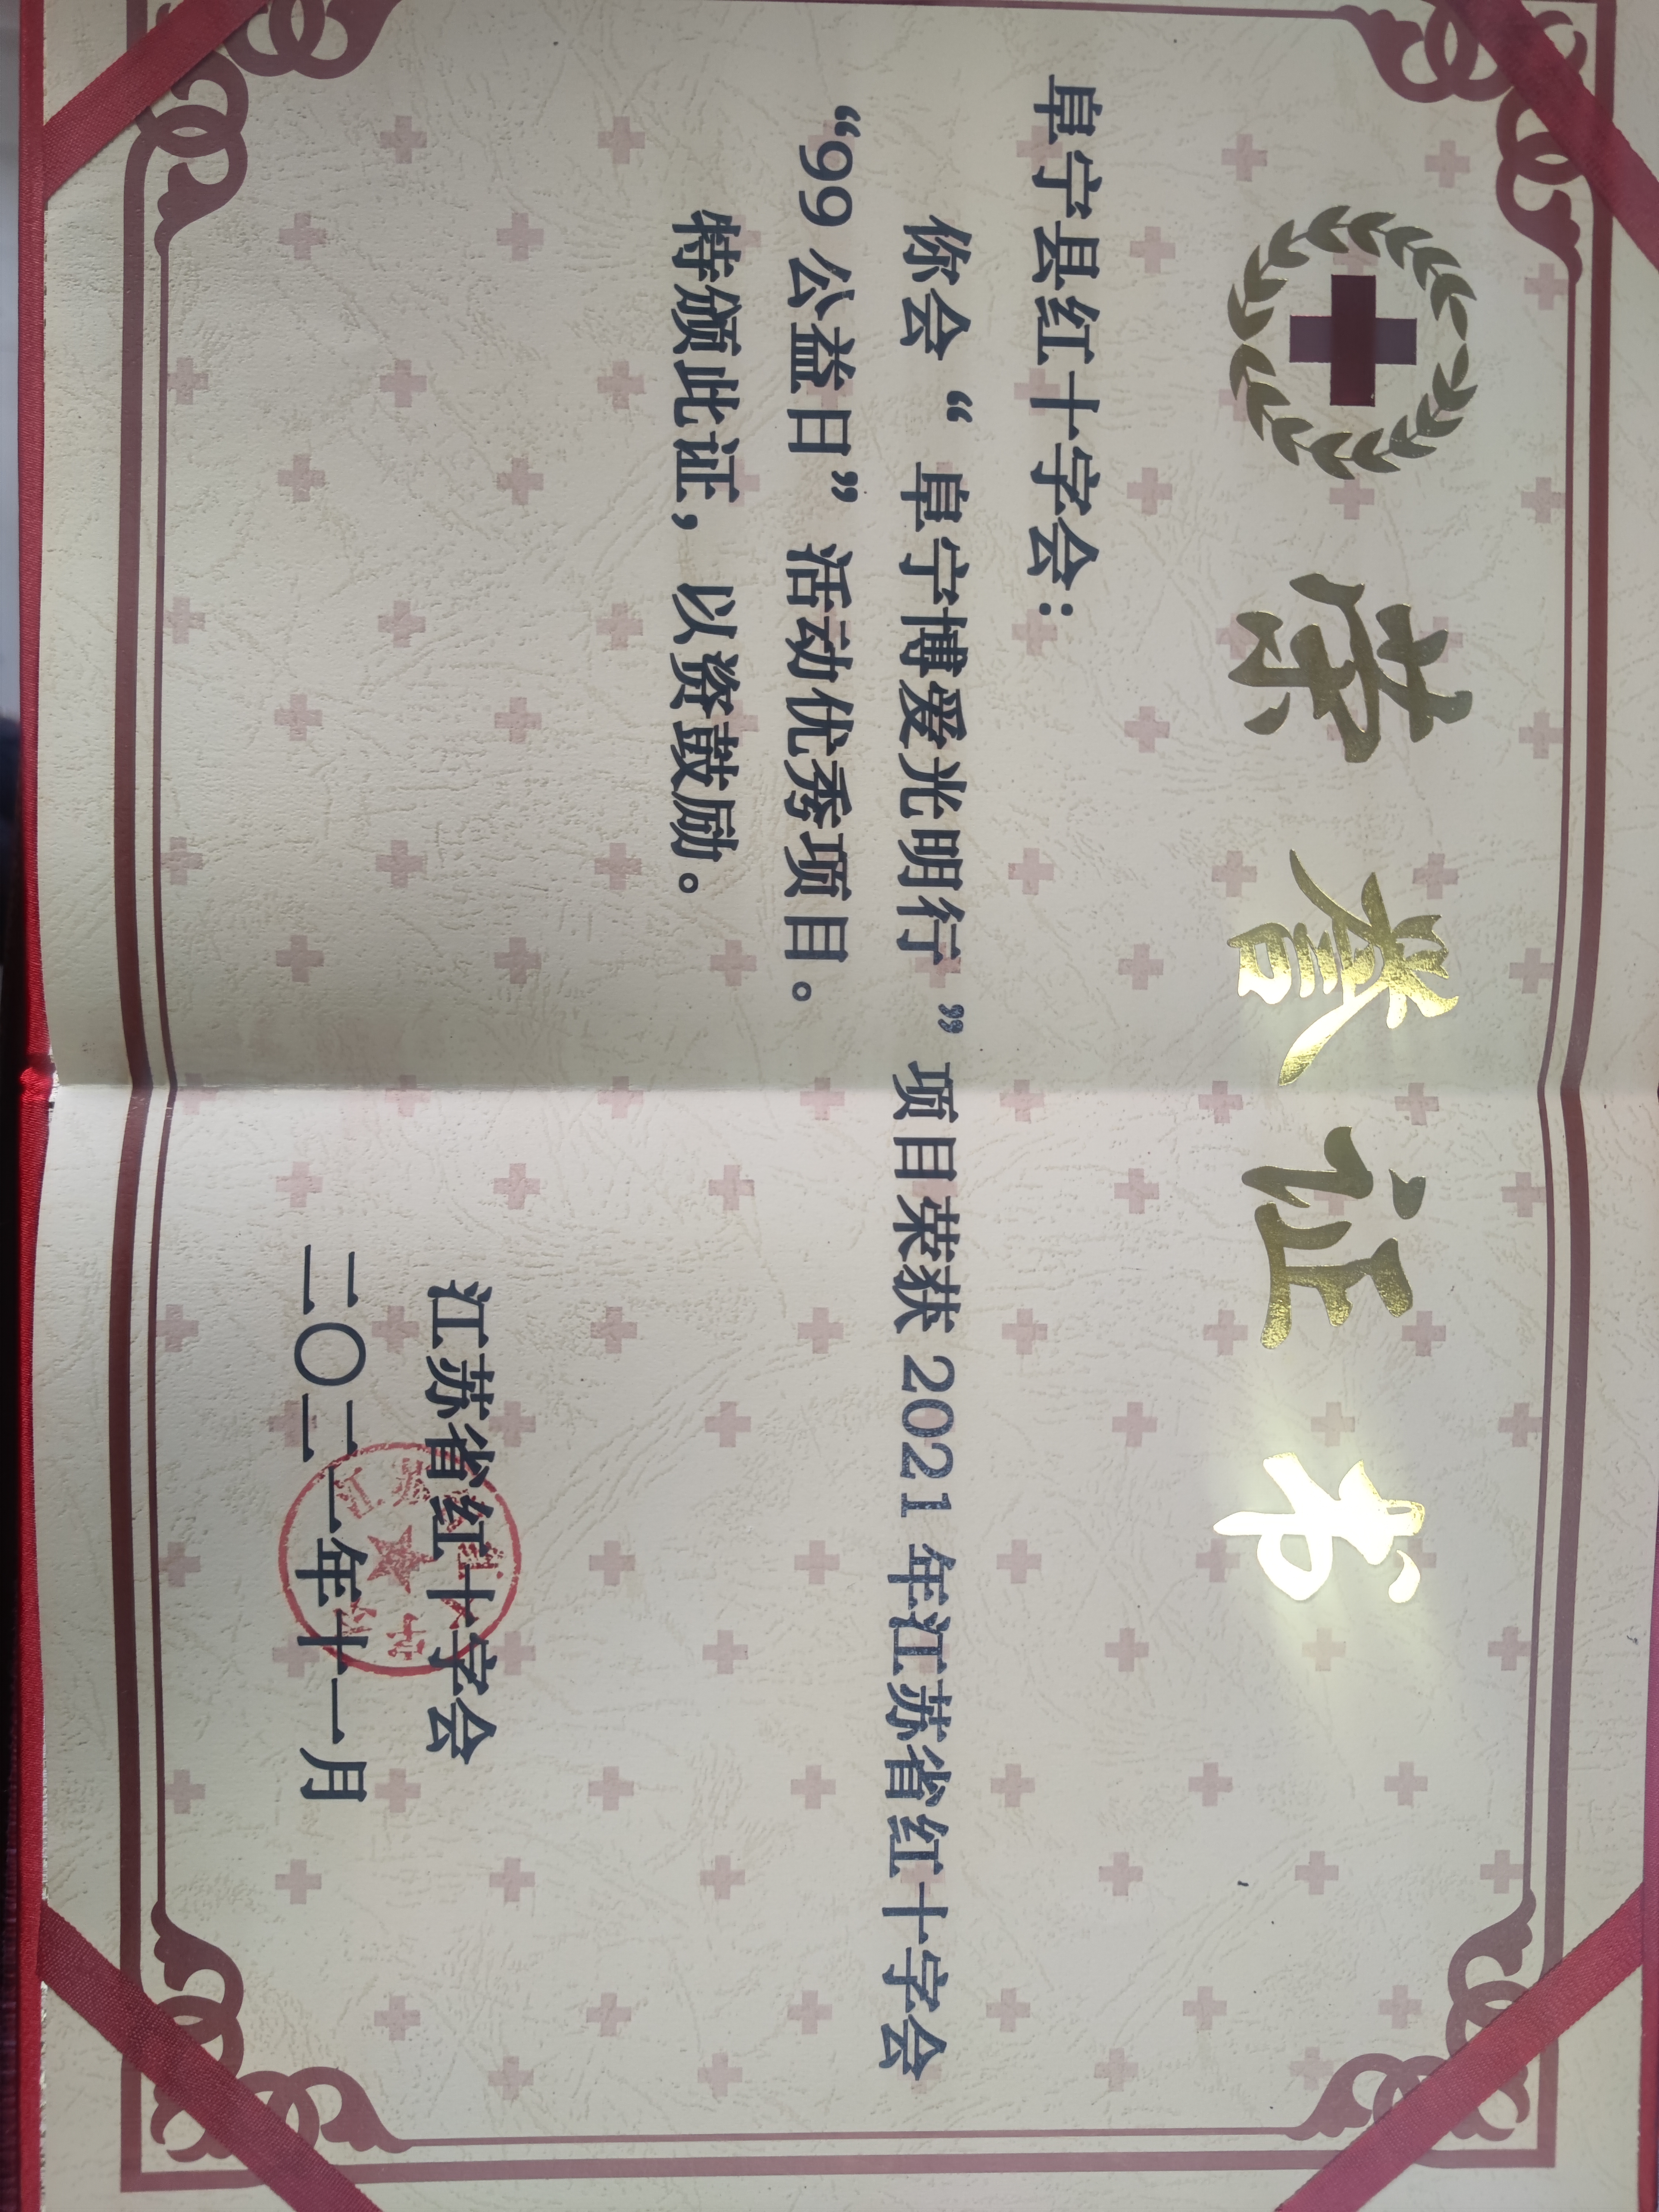 荣誉证书
阜宁县红十字会：
你会“阜宁博爱光明行”项目荣获 2021 年江苏省红十字会
“99 公益日”活动优秀项目。
特颁此证，以资鼓励。
江苏省红十字会
二〇二一年十一月